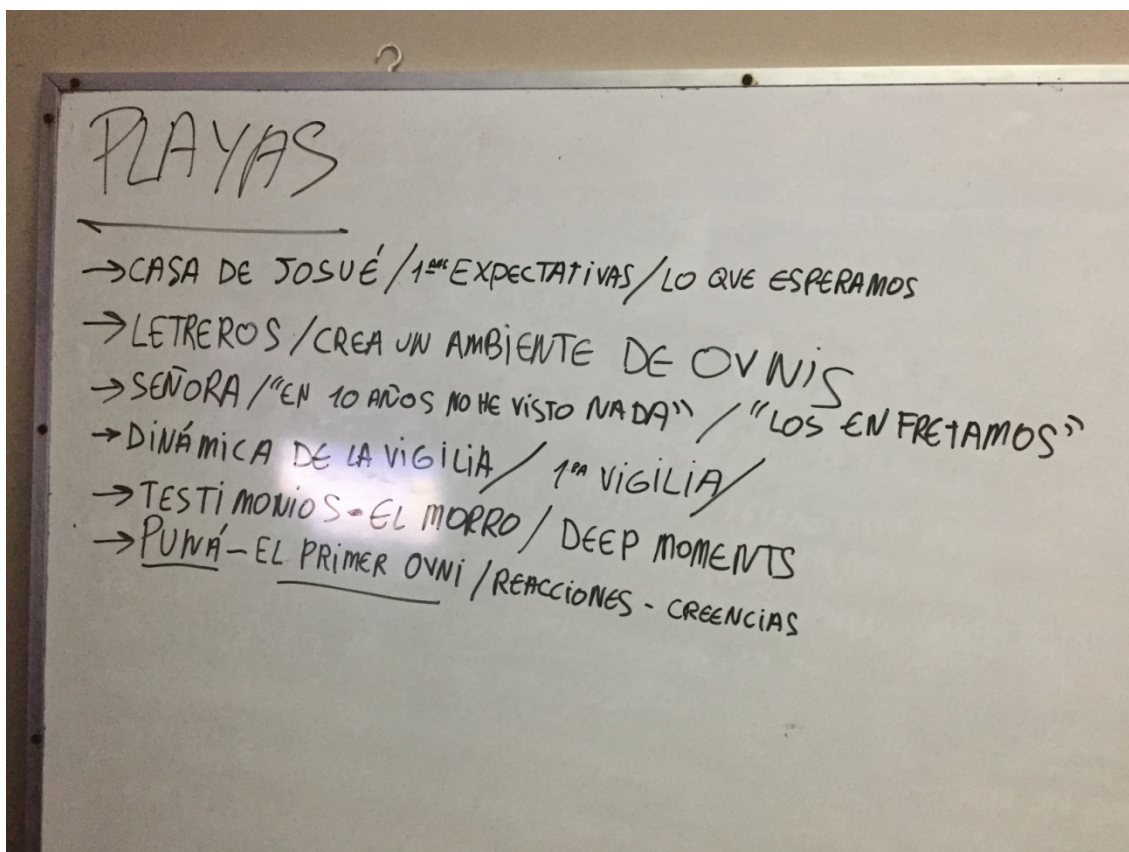 PLAYAS
→CASA DE JOSUÉ/1ᵉʳᵃˢ EXPECTATIVAS/LO QUE ESPERAMOS
→LETREROS/CREA UN AMBIENTE DE OVNIS
→SEÑORA/"EN 10 AÑOS NO HE VISTO NADA"/"LOS ENFRETAMOS"
→DINÁMICA DE LA VIGILIA/1ᴿᴬ VIGILIA/
→TESTIMONIOS-EL MORRO/DEEP MOMENTS
→PUNÁ-EL PRIMER OVNI/REACCIONES-CREENCIAS